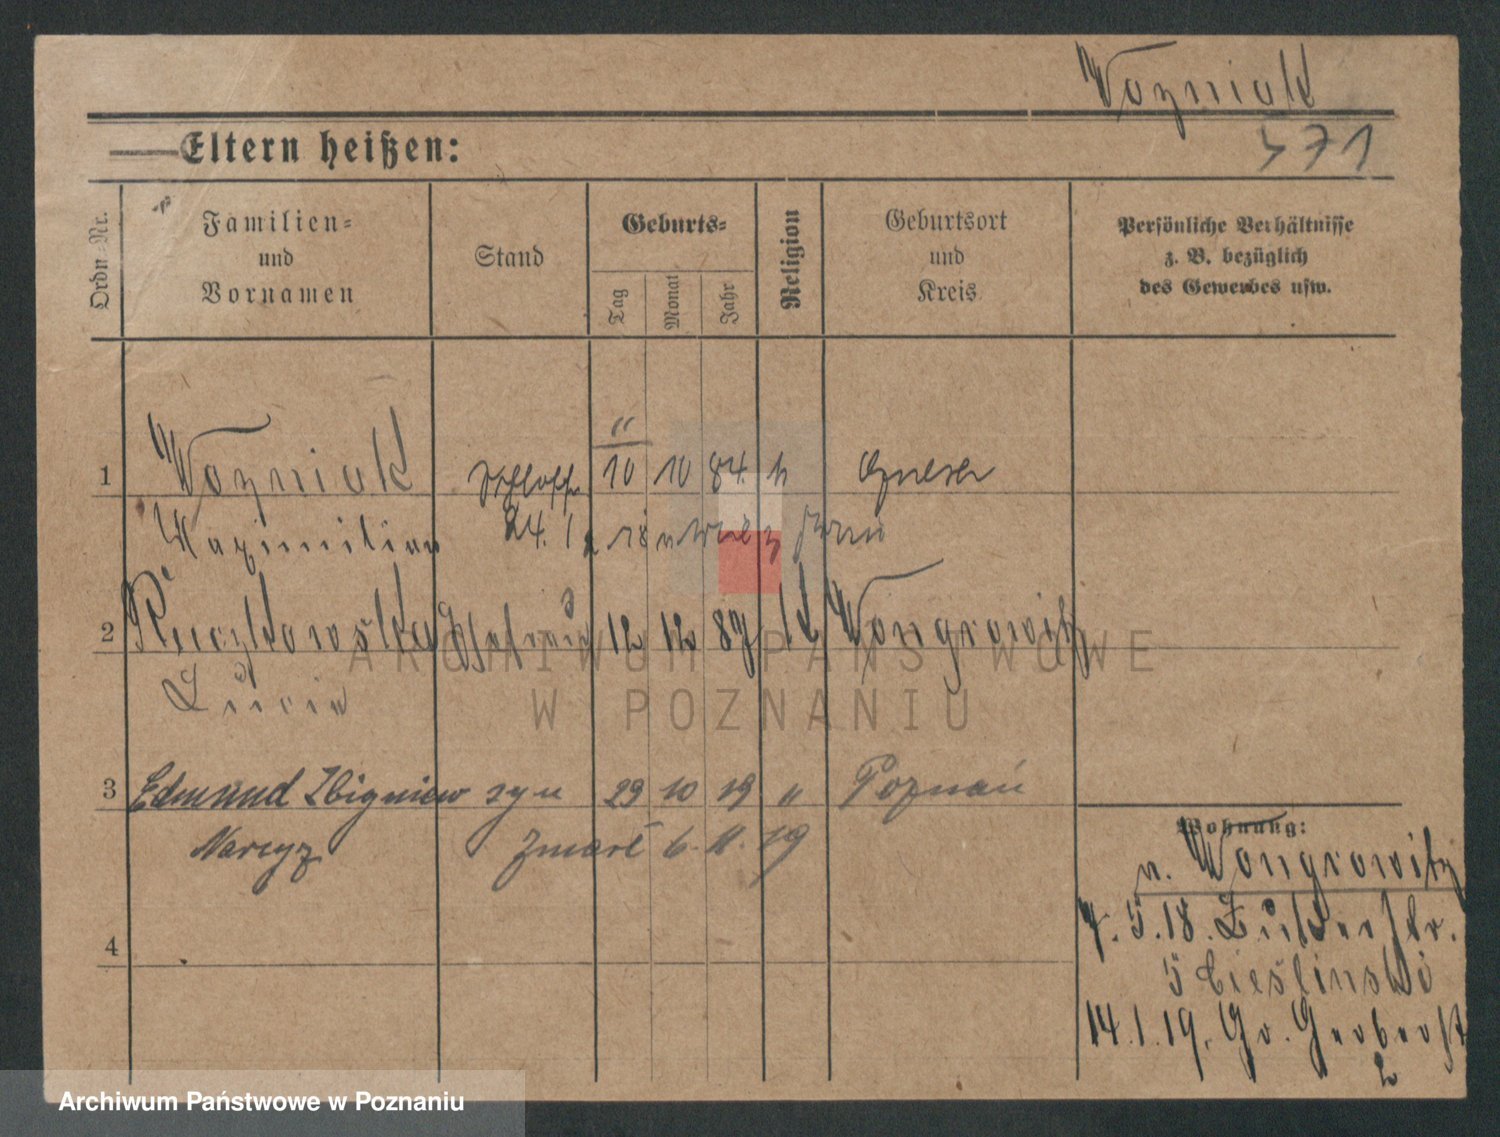 Wozniak
571
Eltern heißen:
Ordn.-Nr.
Familien- und Vornamen
Stand
Geburts-
Tag
Monat
Jahr
Religion
Geburtsort und Kreis
Persönliche Verhältnisse z. B. bezüglich des Gewerbes usw.
"
1 Wozniak 10 10 84. k Gnesen
Maximilian 24. 1 18
2 Ehefrau 12 12 87 k Wongrowitz
Lucie
3 Edmund Zbigniew syn 29 10 19 " Poznań
Narcyz zmarł 6. 11. 19
4
Wohnung:
n. Wongrowitz
7. 5. 18.
5 Cieslinski
14. 1. 19. Gr. Gerberstr
2
ARCHIWUM PAŃSTWOWE
W POZNANIU
Archiwum Państwowe w Poznaniu